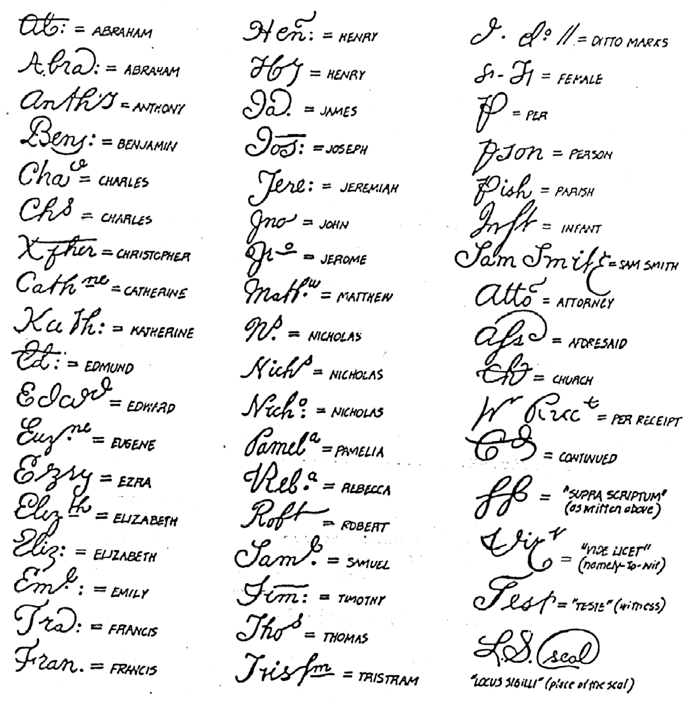 Ab: = ABRAHAM
Abra: = ABRAHAM
Anth's = ANTHONY
Benj: = BENJAMIN
Cha^s = CHARLES
Ch^s = CHARLES
Xpher = CHRISTOPHER
Cath^ne = CATHERINE
Kath: = KATHERINE
Ed: = EDMUND
Edw^d = EDWARD
Eug^ne = EUGENE
Ezry = EZRA
Eliz^th = ELIZABETH
Eliz: = ELIZABETH
Em^l: = EMILY
Fra: = FRANCIS
Fran. = FRANCIS
Hen: = HENRY
Hy = HENRY
Ja. = JAMES
Jos: = JOSEPH
Jere: = JEREMIAH
Jno = JOHN
Jr^o = JEROME
Math.^w = MATTHEW
N^s. = NICHOLAS
Nich^s = NICHOLAS
Nich^o: = NICHOLAS
Pamel^a = PAMELIA
Reb.^a = REBECCA
Robt = ROBERT
Sam^l. = SAMUEL
Tim: = TIMOTHY
Tho^s = THOMAS
Trist^m = TRISTRAM
D. d^o // = DITTO MARKS
= FEMALE
P = PER
Pson = PERSON
Pish = PARISH
Inft = INFANT
Sam Smith = SAM SMITH
Atto^r = ATTORNEY
Afs^d = AFORESAID
Ch = CHURCH
Recc^t = PER RECEIPT
= CONTINUED
ss = "SUPRA SCRIPTUM"
(as written above)
Viz^t = "VIDE LICET"
(namely-to-wit)
Test = "TESTE" (witness)
L.S. seal
"LOCUS SIGILLI" (place of the seal)